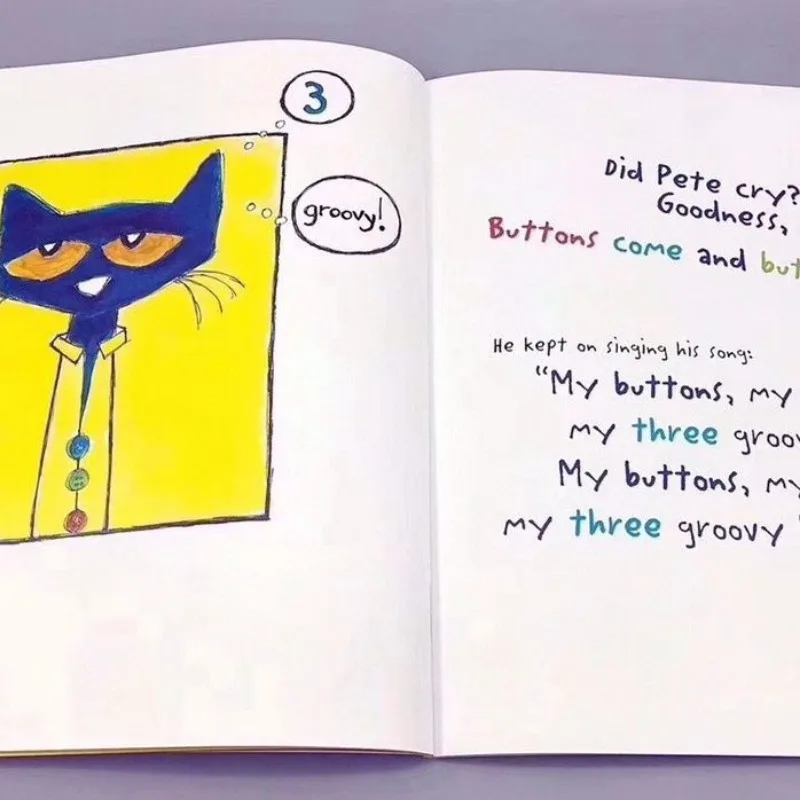 3
groovy!
Did Pete cry?
Goodness,
Buttons come and but
He kept on singing his song:
"My buttons, my
my three groov
My buttons, my
my three groovy